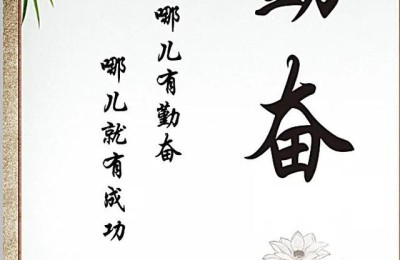 勤奋
哪儿有勤奋
哪儿就有成功